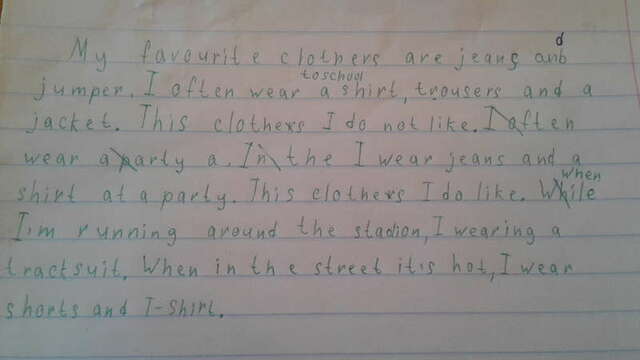 My favourite clothers are jeans and
jumper. I often wear to school a shirt, trousers and a
jacket. This clothers I do not like. I often
wear a party a. In the I wear jeans and a
shirt at a party. This clothers I do like. While when
I'm running around the stadion, I wearing a
tractsuit. When in the street it's hot, I wear
shorts and T-shirt.